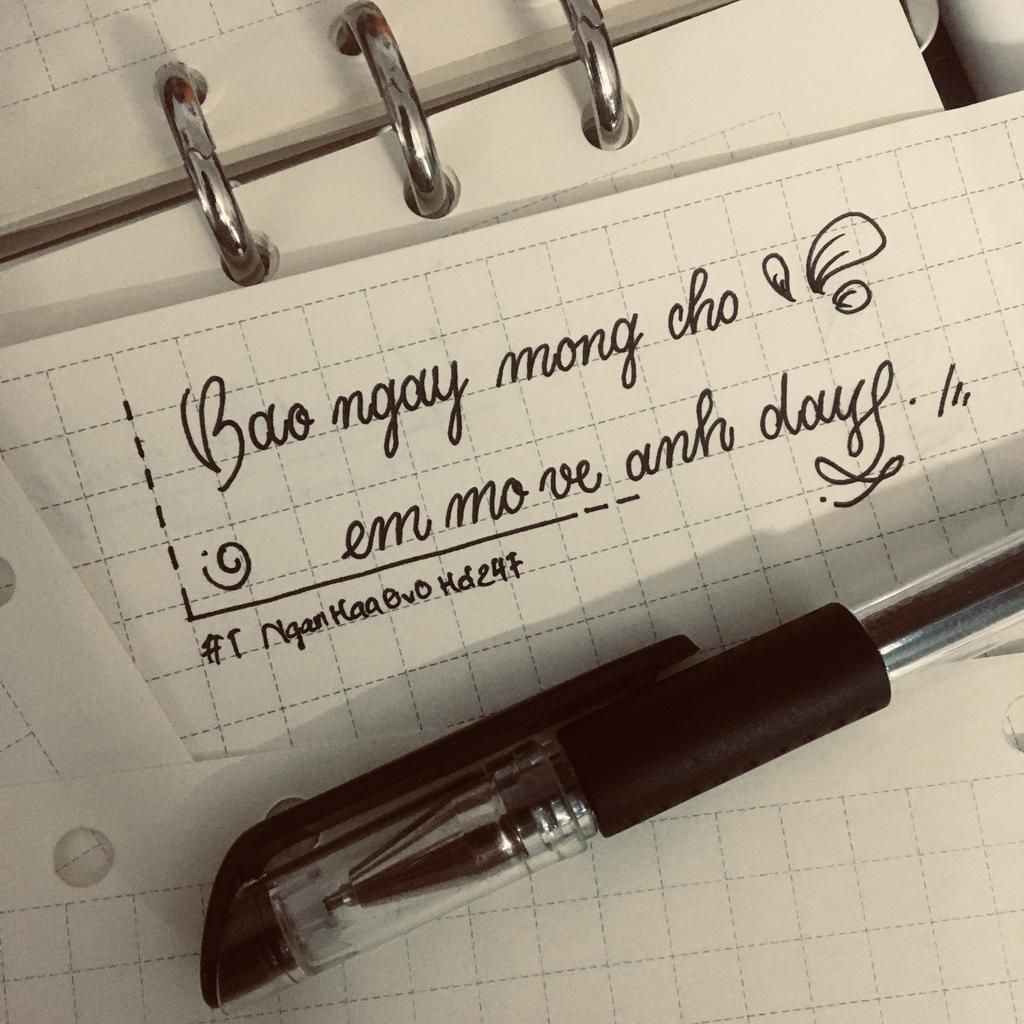 Bao ngay mong cho
em mo ve anh day.
#T NganHaaOvO Hd247